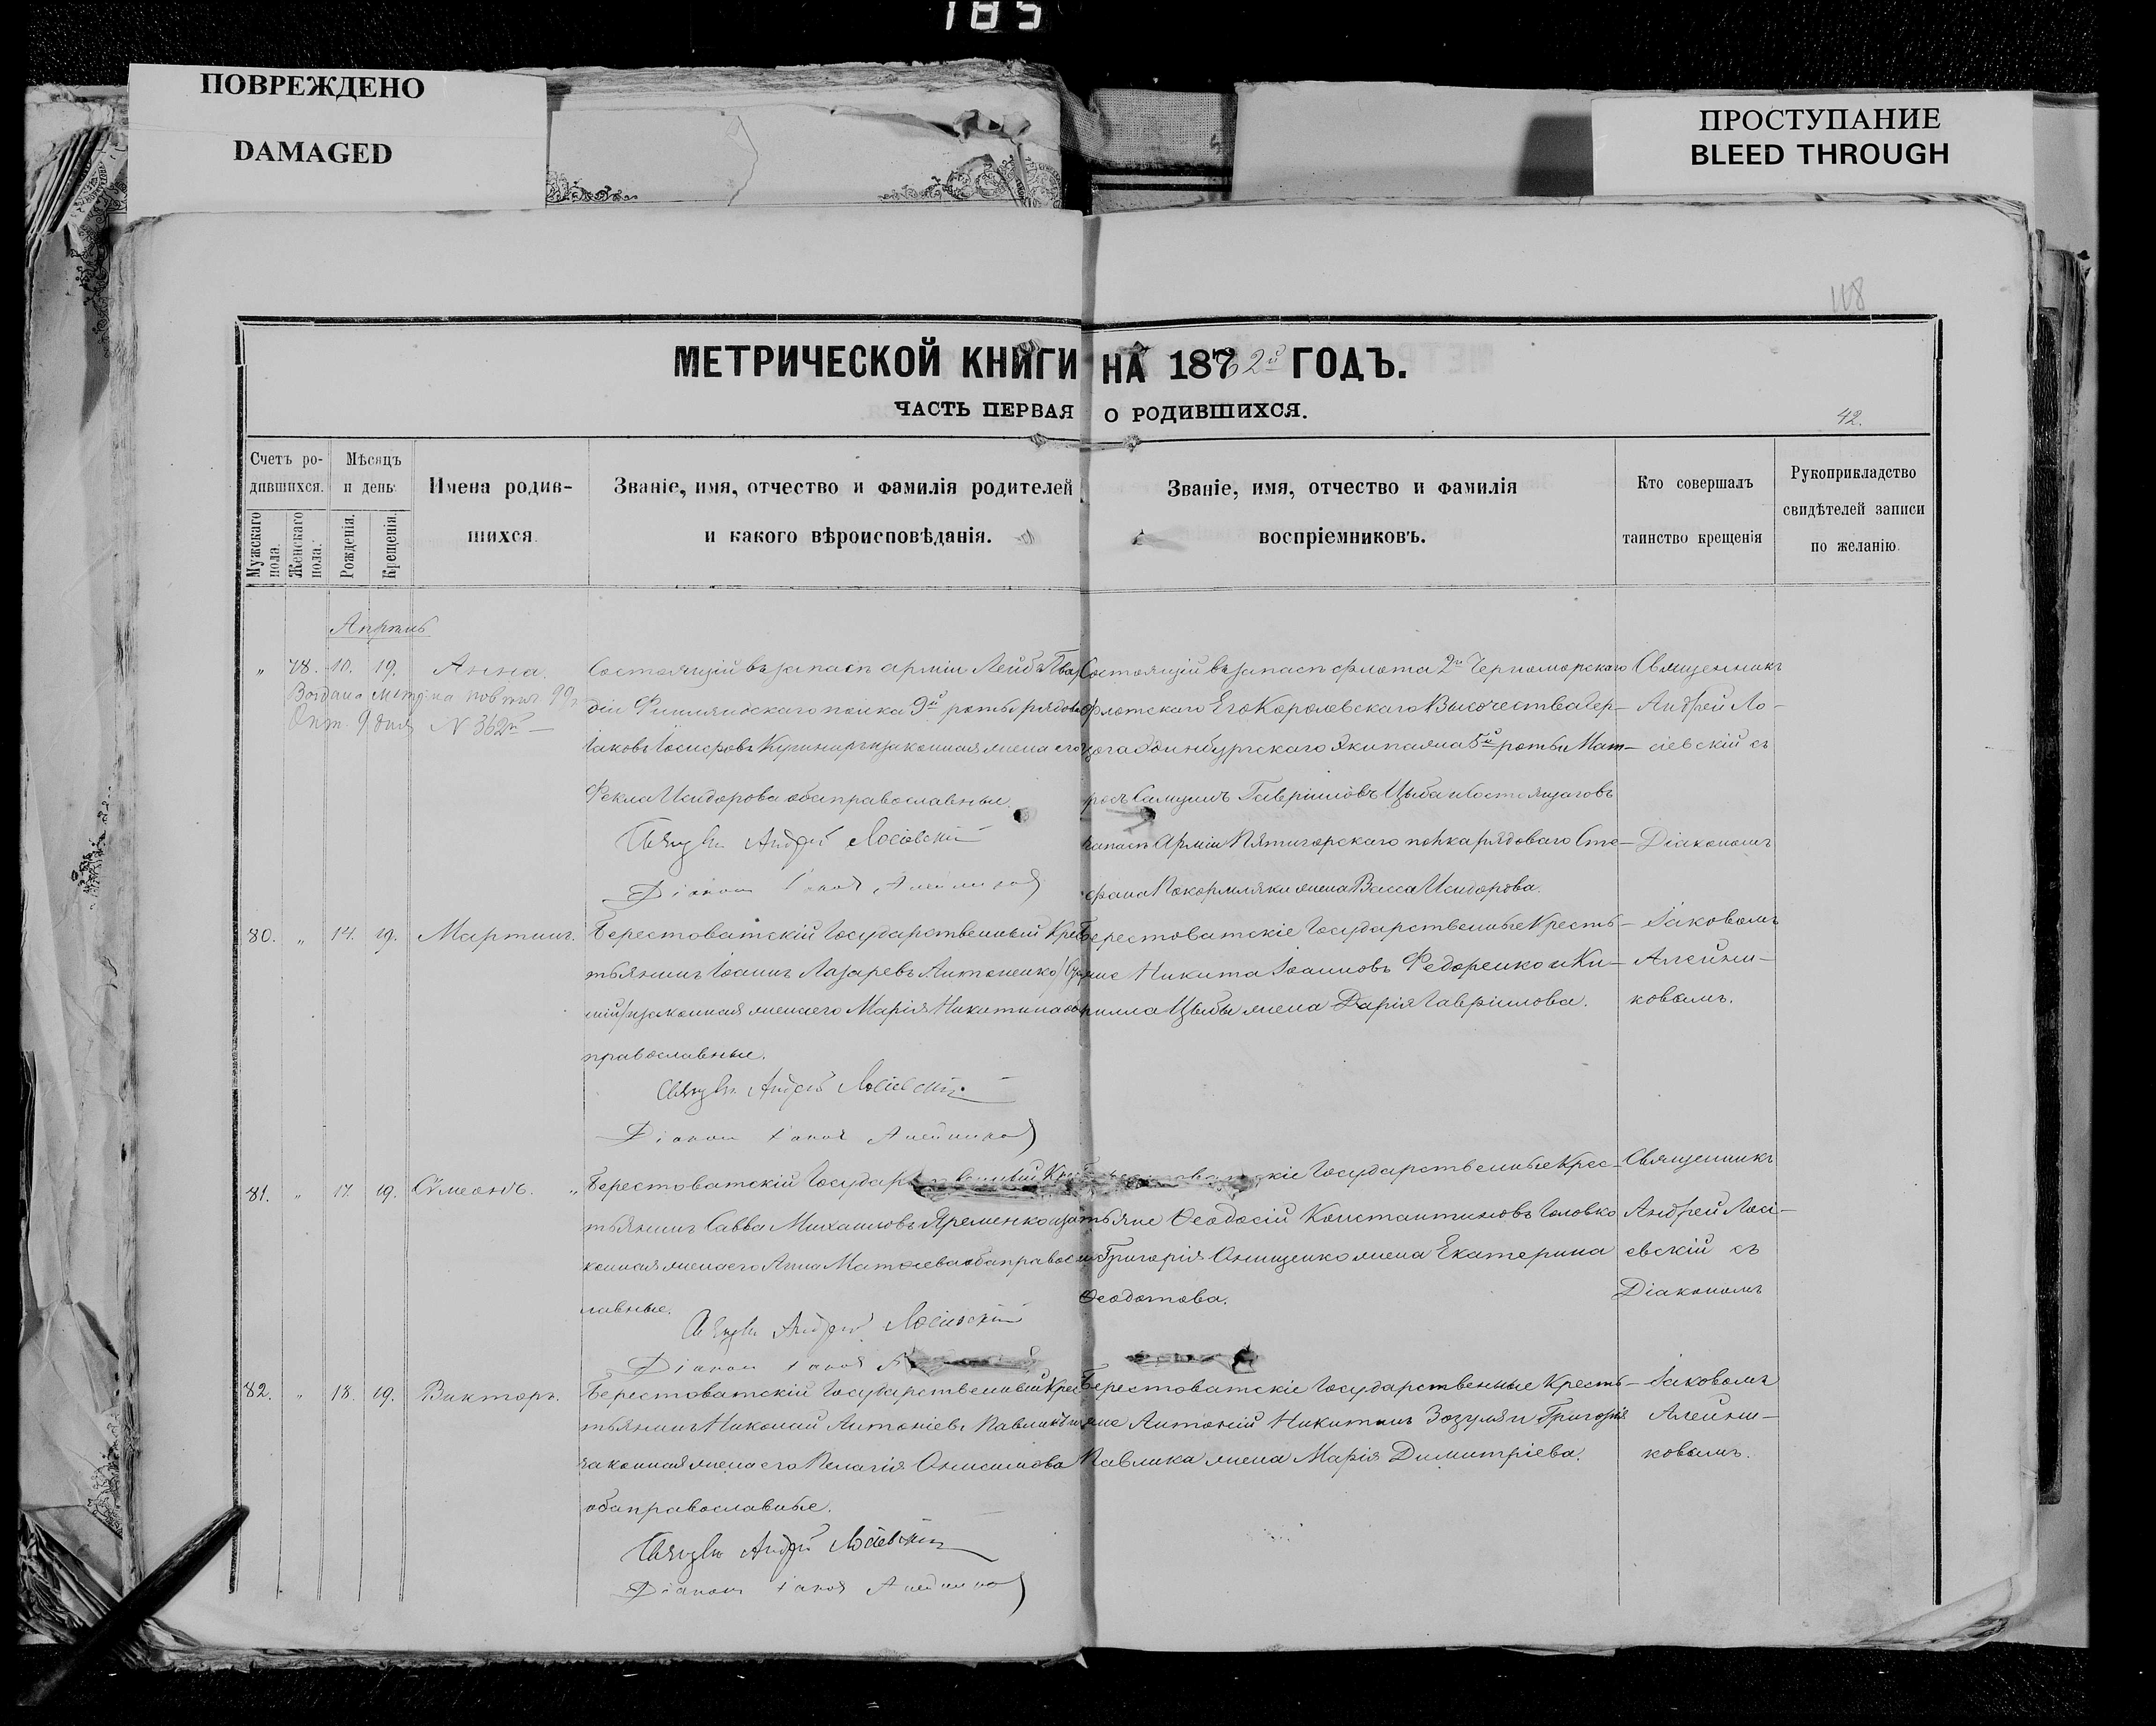 185
ПОВРЕЖДЕНО
DAMAGED
ПРОСТУПАНИЕ
BLEED THROUGH
118
МЕТРИЧЕСКОЙ КНИГИ НА 1872й ГОДЪ.
ЧАСТЬ ПЕРВАЯ О РОДИВШИХСЯ.
42.
Счетъ ро-
дившихся.
Мужскаго пола.
Женскаго пола.
Мѣсяцъ
и день.
Рожденія.
Крещенія.
Имена родив-
шихся.
Званіе, имя, отчество и фамилія родителей
и какого вѣроисповѣданія.
Званіе, имя, отчество и фамилія
воспріемниковъ.
Кто совершалъ
таинство крещенія
Рукоприкладство
свидѣтелей записи
по желанію.
Апрѣль
„ 78. 10. 19. Анна.
99
9 дня N 362
Состоящій въ запасѣ арміи Лейбъ Гвар
діи Финляндскаго полка 9й роты рядовой
Іаковъ Іосифовъ и законная жена его
Ѳекла Исидорова оба православные.
Андрей Лосіевскій
Діаконъ Іаковъ Алейниковъ
Состоящій въ запасѣ флота 2го Черноморскаго
флотскаго Его Королевскаго Высочества Гер-
цога Эдинбургскаго Экипажа 5й роты Мат-
росъ Самуилъ Гавріиловъ Цыба и
запасѣ Арміи Пятигорскаго полка рядоваго Сте-
фана жена Васса Исидорова.
Священникъ
Андрей Ло-
сіевскій съ
Діакономъ
80. „ 14. 19. Мартинъ.
Берестоватскій Государственный Крес
тьянинъ Іоаннъ Лазаревъ Антоненко
законная жена его Марія Никитина оба
православные.
Андрей Лосіевскій
Діаконъ Іаковъ Алейниковъ
Берестоватскіе Государственные Кресть-
яне Никита Іоанновъ Федоренко и Ки-
рилла Цыбы жена Дарія Гавріилова.
Іаковомъ
Алейни-
ковымъ.
81. „ 17. 19. Сѵмеонъ.
Берестоватскій
тьянинъ Савва Михаиловъ Яременко и за
конная жена его Анна Матѳеева оба правос
лавные.
Андрей Лосіевскій
Діаконъ Іаковъ
Государственные Крес-
тьяне Ѳеодосій Константиновъ Головко
и Григорія Онищенко жена Екатерина
Ѳеодотова.
Священникъ
Андрей Лосі-
евскій съ
Діакономъ
82. „ 18. 19. Викторъ.
Берестоватскій Государственный Крес
тьянинъ Николай Антоніевъ Павликъ и
законная жена его Пелагія Онисимова
оба православные.
Андрей Лосіевскій
Діаконъ Іаковъ Алейниковъ
Берестоватскіе Государственные Кресть-
яне Антоній Никитинъ Зозуля и Григорія
Павлика жена Марія Димитріева.
Іаковомъ
Алейни-
ковымъ.